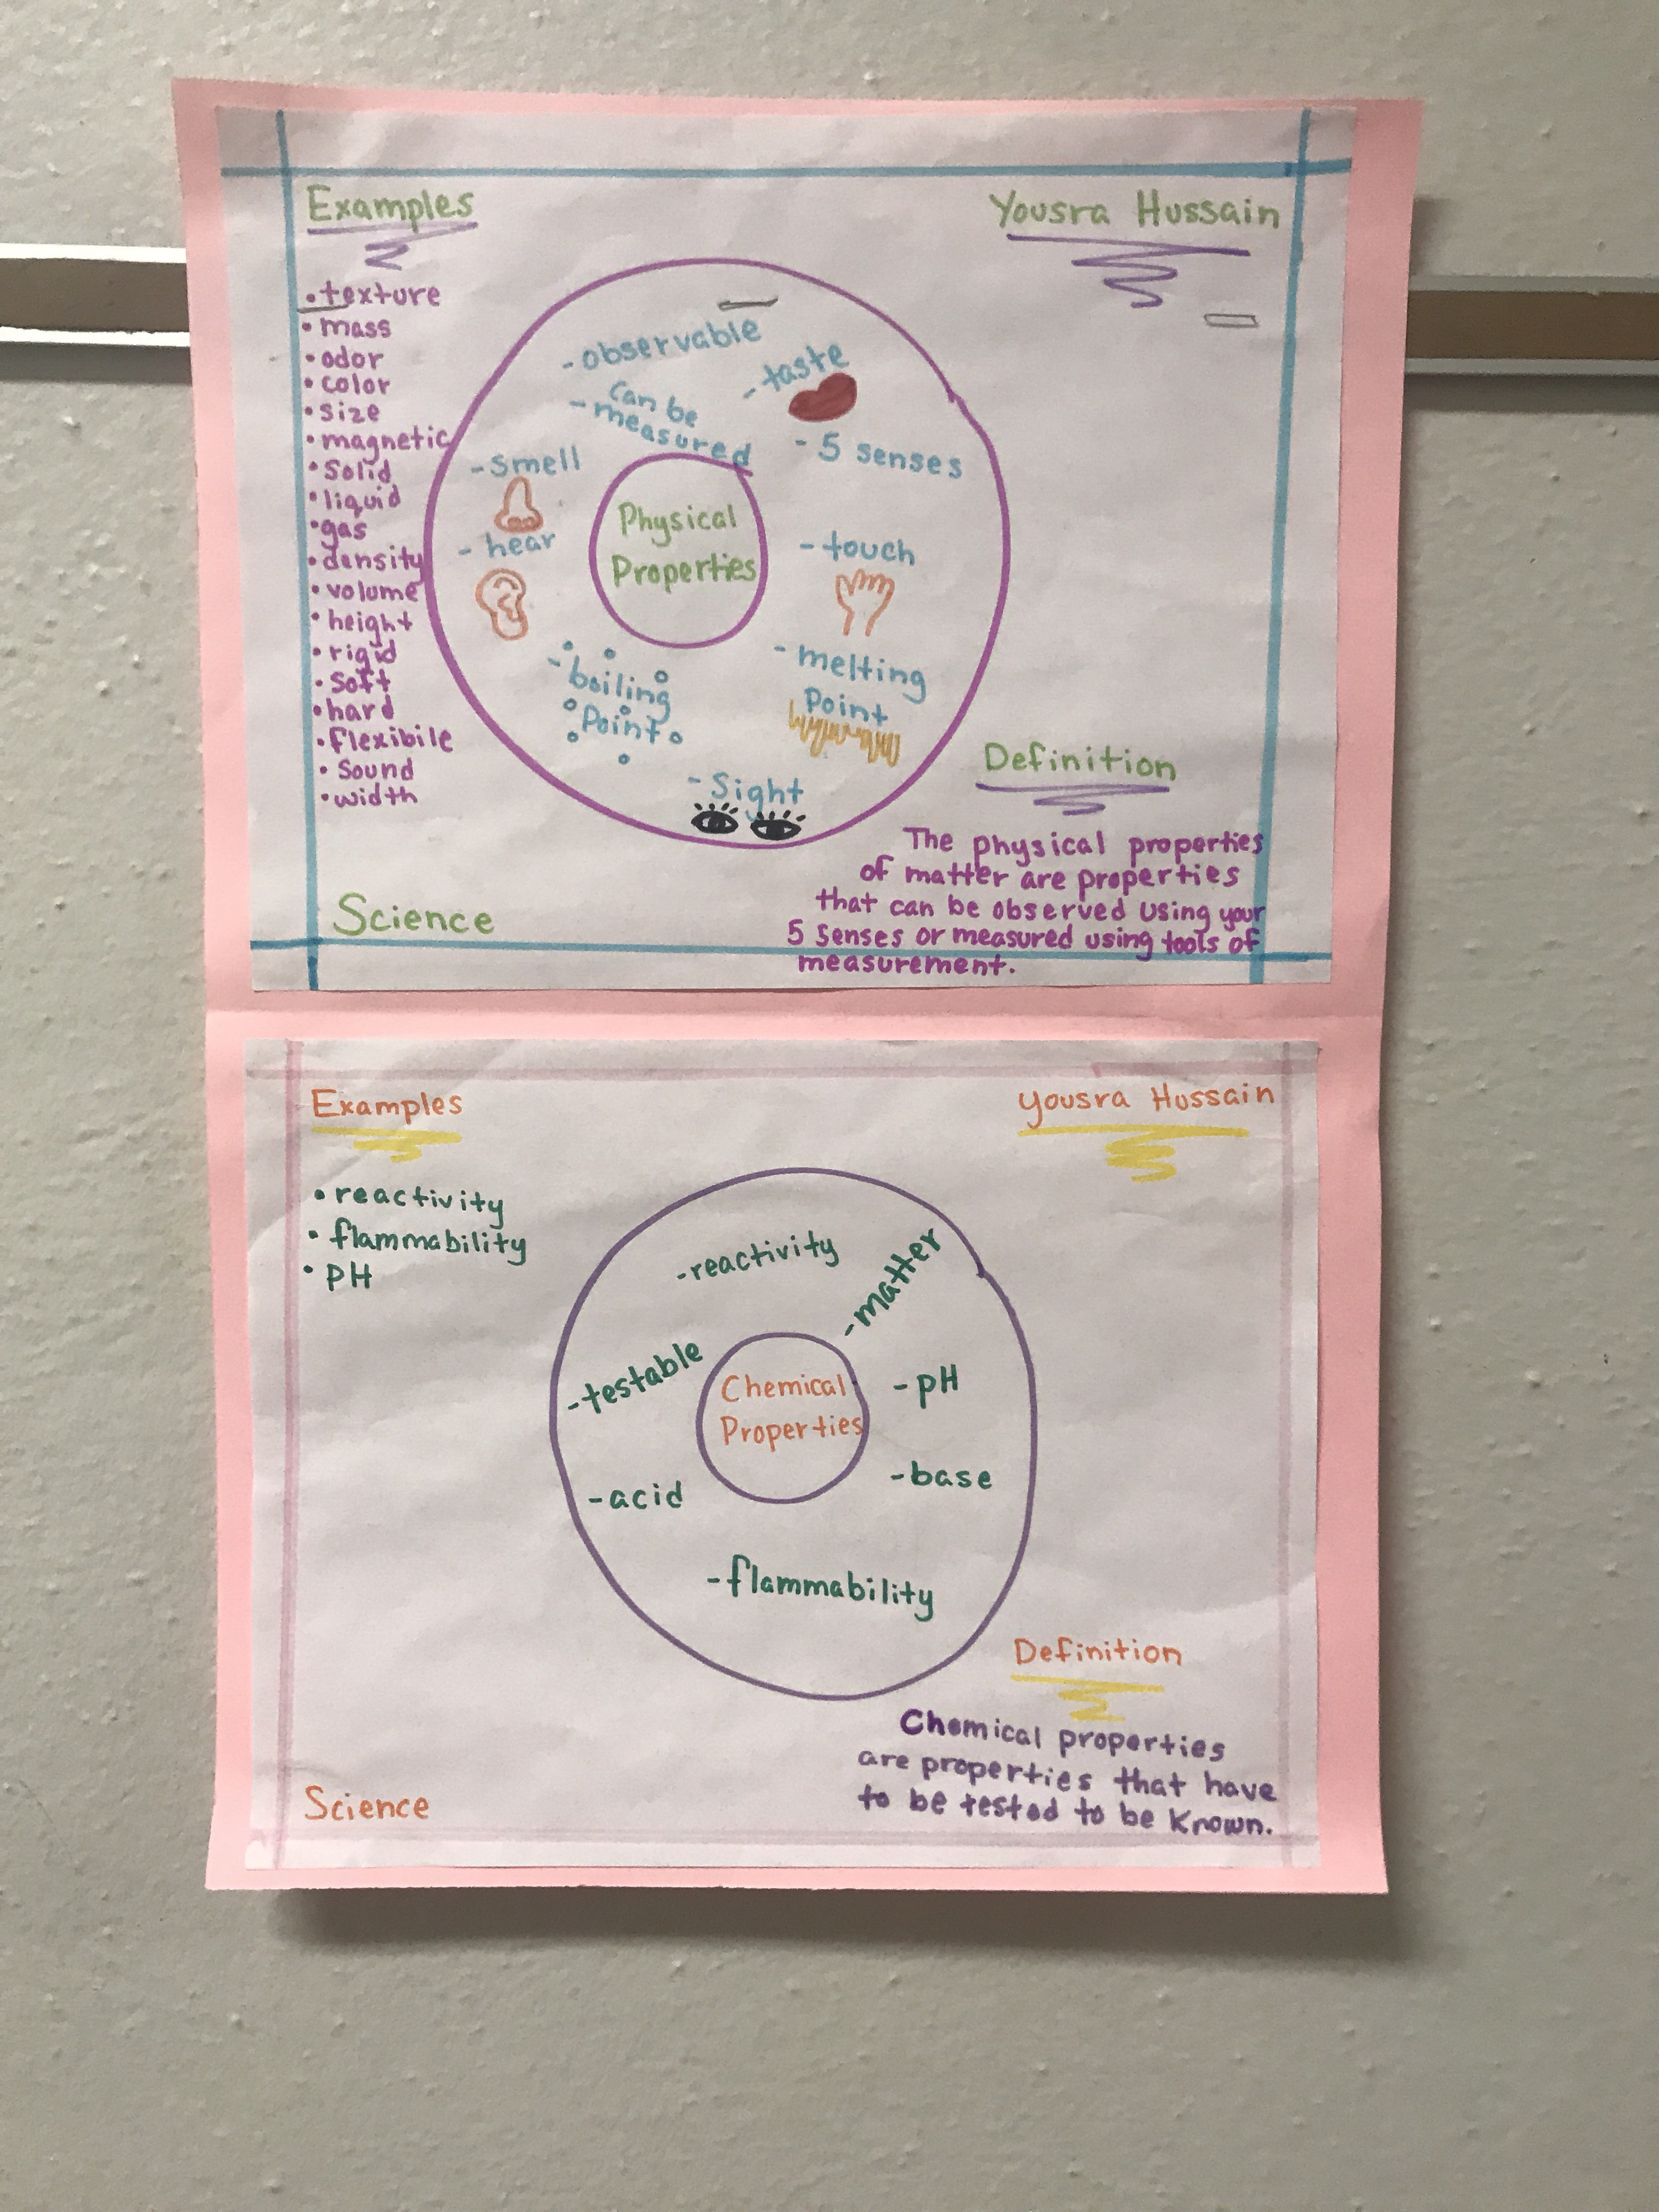 Examples
Yousra Hussain
• texture
• mass
• odor
• color
• size
• magnetic
• Solid
• liquid
• gas
• density
• volume
• height
• rigid
• Soft
• hard
• flexibile
• Sound
• width
- observable
- can be
measured
- taste
- 5 senses
- smell
- hear
Physical
Properties
- touch
- boiling
Point
- melting
Point
- Sight
Definition
The physical properties
of matter are properties
that can be observed using your
5 senses or measured using tools of
measurement.
Science
Examples
yousra Hussain
• reactivity
• flammability
• pH
- reactivity
- matter
- testable
Chemical
Properties
- pH
- acid
- base
- flammability
Definition
Chemical properties
are properties that have
to be tested to be known.
Science